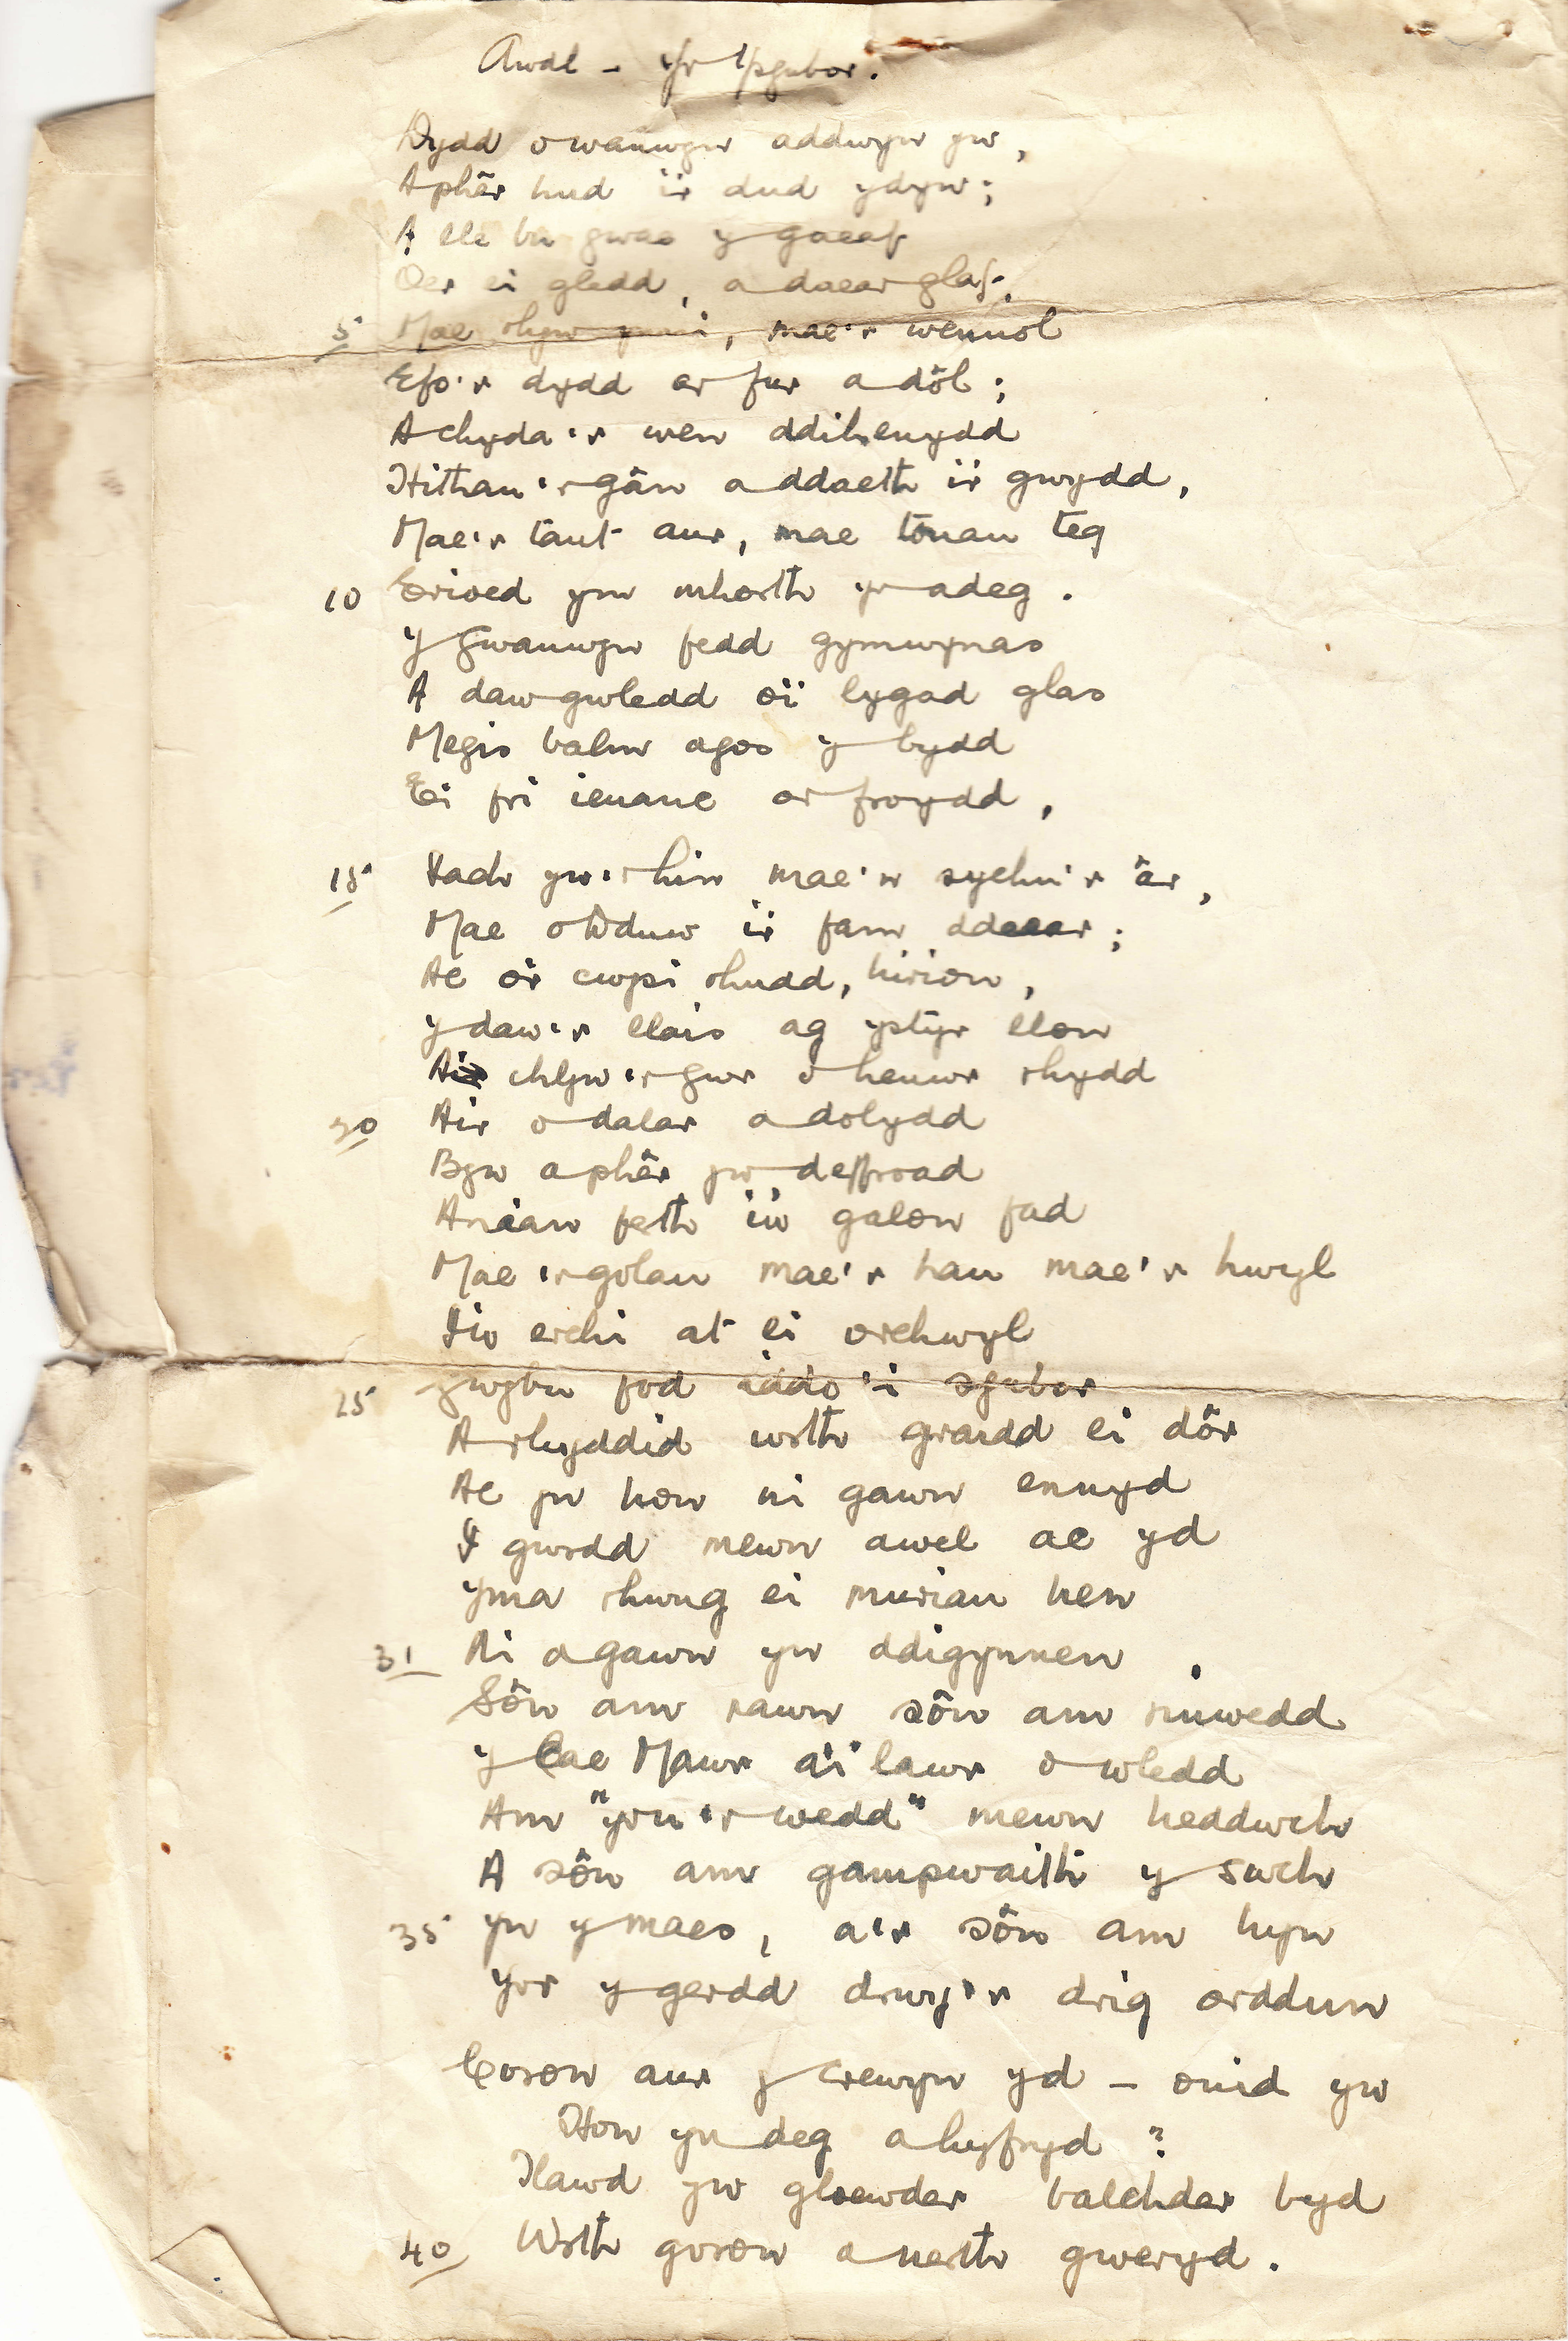 Awdl - Yr Ysgubor.
Dydd o wanwyn addwyn yw,
A phêr hud i'r dud ydyw;
A lle bu gwae y gaeaf
Oer ei gledd, a daear glaf,
5 Mae rhyw ynni, mae'r wennol
Efo'r dydd ar fur a dôl;
A chyda'r wen ddihenydd
Hithau'r gân a ddaeth i'r gwŷdd,
Mae'r tant aur, mae tonau teg
10 Erioed ym mhorth yr adeg.
Y Gwanwyn fedd gymwynas
A daw gwledd o'i lygad glas
Megis balm agos y bydd
Ei fri ieuanc ar froydd,
15 Iach yw'r hin mae'n sychu'r âr,
Mae o Dduw i'r fam ddaear;
Ac o'i cwpi rhudd, hirion,
Y daw'r llais ag ystyr llon
A chlyw'r gwr o henwr rhydd
20 Air o dalar a dolydd
Byw a phêr yw deffroad
Anian ferth i'w galon fad
Mae'r golau mae'r hau mae'r hwyl
I'w erchi at ei orchwyl
25 Gwybu fod iddo'i sgubor
A rhyddid wrth graidd ei dôr
Ac yn hon ni gawn ennyd
I gwrdd mewn awel ac yd
Yma rhwng ei muriau hen
31 Ni a gawn yn ddigynnen
Sôn am rawn sôn am rinwedd
Y Cae Mawr a'i lawr o wledd
Am "yrru'r wedd" mewn heddwch
A sôn am gampwaith y swch
35 Yn y maes, a'r sôn am hyn
Yw'r y gerdd drwy'r drig orddun
Coron aur y crewyn yd - onid yw
Hon yn deg a hyfryd?
Tlawd yw gloewder balchder byd
40 Wrth goron a nerth gweryd.